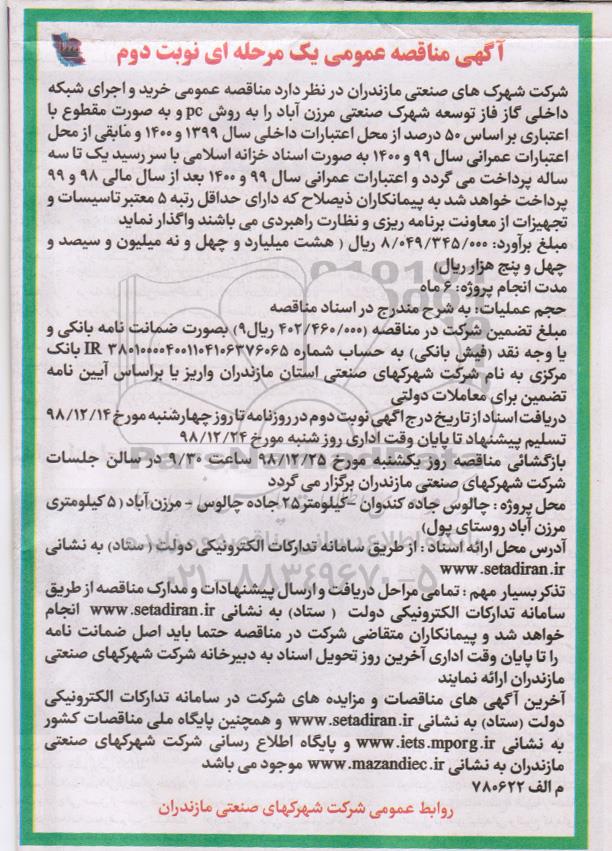 آگهی مناقصه عمومی یک مرحله ای نوبت دوم
شرکت شهرک های صنعتی مازندران در نظر دارد مناقصه عمومی خرید و اجرای شبکه
داخلی گاز فاز توسعه شهرک صنعتی مرزن آباد را به روش pc و به صورت مقطوع با
اعتباری بر اساس ۵۰ درصد از محل اعتبارات داخلی سال ۱۳۹۹ و ۱۴۰۰ و مابقی از محل
اعتبارات عمرانی سال ۹۹ و ۱۴۰۰ به صورت اسناد خزانه اسلامی با سر رسید یک تا سه
ساله پرداخت می گردد و اعتبارات عمرانی سال ۹۹ و ۱۴۰۰ بعد از سال مالی ۹۸ و ۹۹
پرداخت خواهد شد به پیمانکاران ذیصلاح که دارای حداقل رتبه ۵ معتبر تاسیسات و
تجهیزات از معاونت برنامه ریزی و نظارت راهبردی می باشند واگذار نماید
مبلغ برآورد: ۸/۰۴۹/۳۴۵/۰۰۰ ریال ( هشت میلیارد و چهل و نه میلیون و سیصد و
چهل و پنج هزار ریال)
مدت انجام پروژه: ۶ ماه
حجم عملیات: به شرح مندرج در اسناد مناقصه
مبلغ تضمین شرکت در مناقصه (۴۰۲/۴۶۰/۰۰۰ ریال۹) بصورت ضمانت نامه بانکی و
یا وجه نقد (فیش بانکی) به حساب شماره IR ۳۸۰۱۰۰۰۰۴۰۰۱۱۰۴۱۰۶۳۷۶۰۶۵ بانک
مرکزی به نام شرکت شهرکهای صنعتی استان مازندران واریز یا براساس آیین نامه
تضمین برای معاملات دولتی
دریافت اسناد از تاریخ درج اگهی نوبت دوم در روزنامه تا روز چهارشنبه مورخ ۹۸/۱۲/۱۴
تسلیم پیشنهاد تا پایان وقت اداری روز شنبه مورخ ۹۸/۱۲/۲۴
بازگشائی مناقصه روز یکشنبه مورخ ۹۸/۱۲/۲۵ ساعت ۹/۳۰ در سالن جلسات
شرکت شهرکهای صنعتی مازندران برگزار می گردد
محل پروژه : چالوس جاده کندوان –کیلومتر۲۵ جاده چالوس – مرزن آباد (۵ کیلومتری
مرزن آباد روستای پول)
آدرس محل ارائه اسناد : از طریق سامانه تدارکات الکترونیکی دولت ( ستاد) به نشانی
www.setadiran.ir
تذکر بسیار مهم : تمامی مراحل دریافت و ارسال پیشنهادات و مدارک مناقصه از طریق
سامانه تدارکات الکترونیکی دولت ( ستاد) به نشانی www.setadiran.ir انجام
خواهد شد و پیمانکاران متقاضی شرکت در مناقصه حتما باید اصل ضمانت نامه
را تا پایان وقت اداری آخرین روز تحویل اسناد به دبیرخانه شرکت شهرکهای صنعتی
مازندران ارائه نمایند
آخرین آگهی های مناقصات و مزایده های شرکت در سامانه تدارکات الکترونیکی
دولت (ستاد) به نشانی www.setadiran.ir و همچنین پایگاه ملی مناقصات کشور
به نشانی www.iets.mporg.ir و پایگاه اطلاع رسانی شرکت شهرکهای صنعتی
مازندران به نشانی www.mazandiec.ir موجود می باشد
م الف ۷۸۰۶۲۲
روابط عمومی شرکت شهرکهای صنعتی مازندران